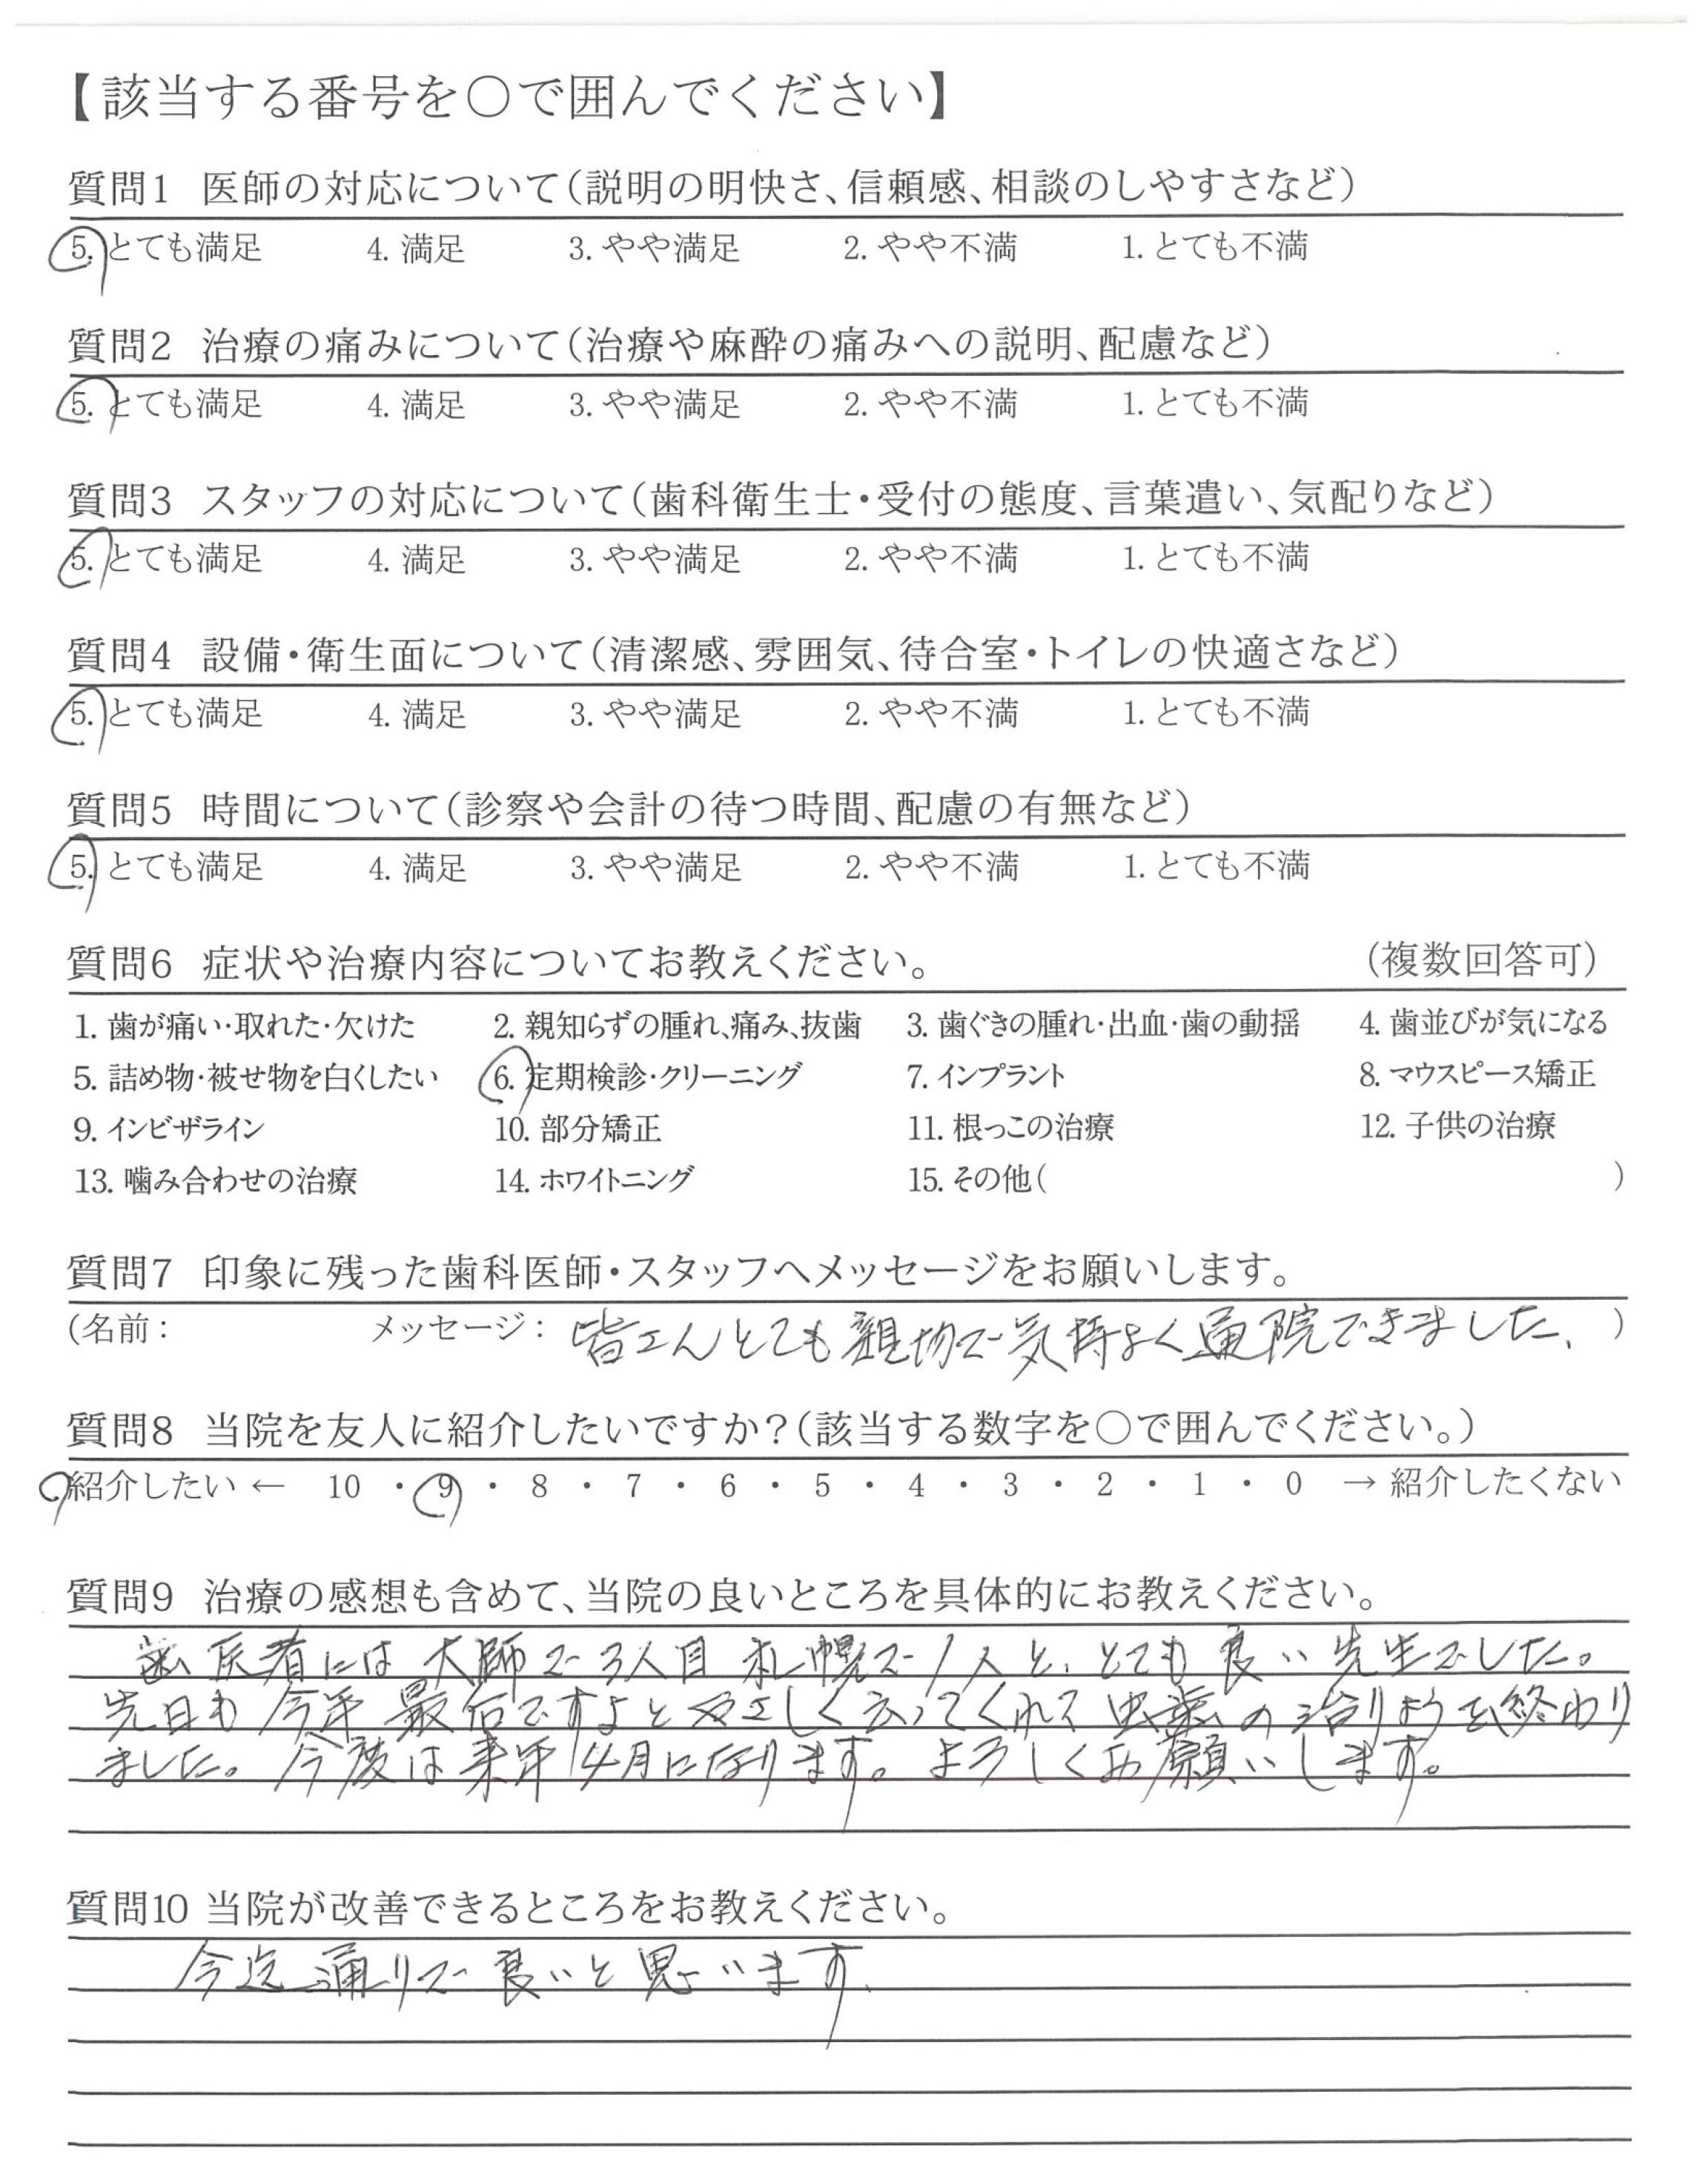 【該当する番号を○で囲んでください】
質問1 医師の対応について(説明の明快さ、信頼感、相談のしやすさなど)
5. とても満足 4. 満足 3. やや満足 2. やや不満 1. とても不満
質問2 治療の痛みについて(治療や麻酔の痛みへの説明、配慮など)
5. とても満足 4. 満足 3. やや満足 2. やや不満 1. とても不満
質問3 スタッフの対応について(歯科衛生士・受付の態度、言葉遣い、気配りなど)
5. とても満足 4. 満足 3. やや満足 2. やや不満 1. とても不満
質問4 設備・衛生面について(清潔感、雰囲気、待合室・トイレの快適さなど)
5. とても満足 4. 満足 3. やや満足 2. やや不満 1. とても不満
質問5 時間について(診察や会計の待つ時間、配慮の有無など)
5. とても満足 4. 満足 3. やや満足 2. やや不満 1. とても不満
質問6 症状や治療内容についてお教えください。 (複数回答可)
1. 歯が痛い・取れた・欠けた 2. 親知らずの腫れ、痛み、抜歯 3. 歯ぐきの腫れ・出血・歯の動揺 4. 歯並びが気になる
5. 詰め物・被せ物を白くしたい 6. 定期検診・クリーニング 7. インプラント 8. マウスピース矯正
9. インビザライン 10. 部分矯正 11. 根っこの治療 12. 子供の治療
13. 噛み合わせの治療 14. ホワイトニング 15. その他( )
質問7 印象に残った歯科医師・スタッフへメッセージをお願いします。
(名前: メッセージ: 皆さんとても親切で気持よく通院できました、 )
質問8 当院を友人に紹介したいですか?(該当する数字を○で囲んでください。)
紹介したい ← 10 ・ 9 ・ 8 ・ 7 ・ 6 ・ 5 ・ 4 ・ 3 ・ 2 ・ 1 ・ 0 → 紹介したくない
質問9 治療の感想も含めて、当院の良いところを具体的にお教えください。
歯医者には大師で3人目 札幌で1人と、とても良い先生でした。
先日も今年最后ですよとやさしく云ってくれて虫歯の治りょうを終わり
ました。今度は来年4月になります。よろしくお願いします。
質問10 当院が改善できるところをお教えください。
今迄通りで良いと思います、